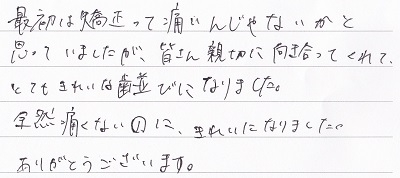 最初は矯正って痛いんじゃないかと
思っていましたが、皆さん親切に向き合ってくれて、
とてもきれいな歯並びになりました。
全然痛くない①に、きれいになりました。
ありがとうございます。